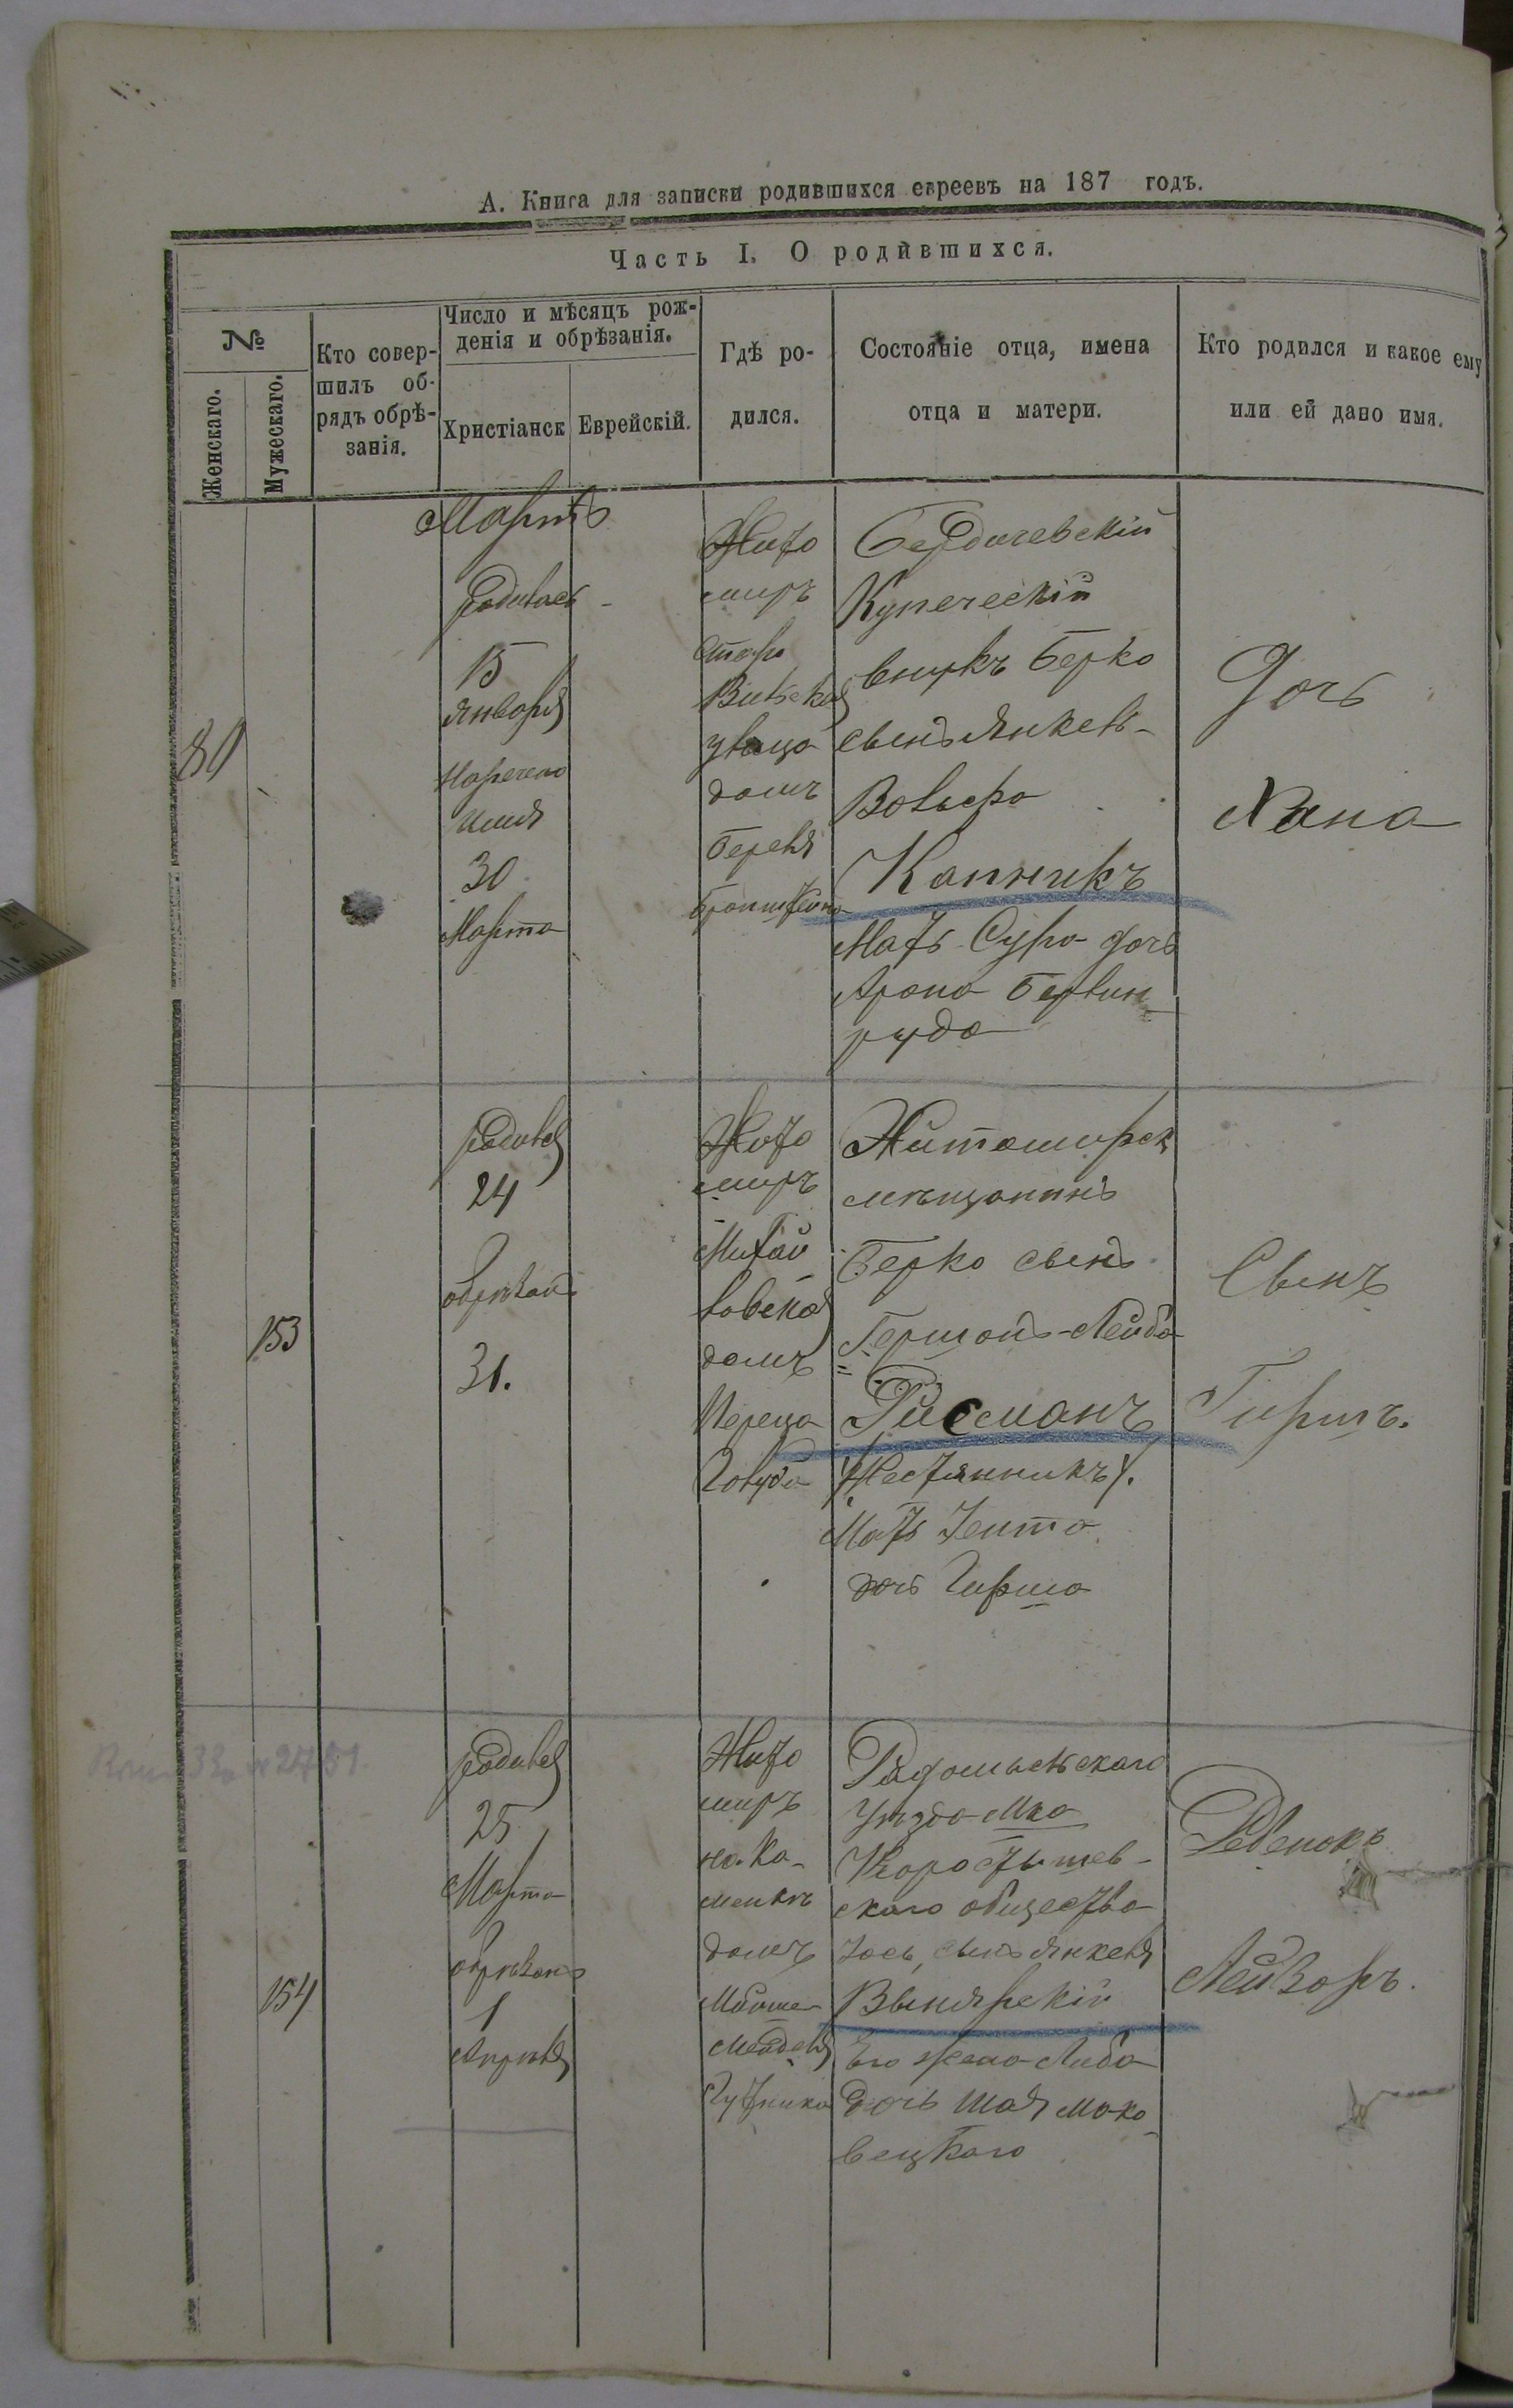 А. Книга для записки родившихся евреевъ на 187 годъ.
Часть I. О родившихся.
№
Женскаго.
Мужескаго.
Кто совер-
шилъ об-
рядъ обрѣ-
занія.
Число и мѣсяцъ рож-
денія и обрѣзанія.
Христіанск
Еврейскій.
Гдѣ ро-
дился.
Состояніе отца, имена
отца и матери.
Кто родился и какое ему
или ей дано имя.
Мартъ
80
родилась
15
января
наречено
имя
30
Марта
Жито
миръ
Старо
Вильская
улица
домъ
Береля
Бердичевскій
Купеческій
внукъ Берко
сынъ Янкель-
Вольфа
Капникъ
Мать Сура дочь
Арона
Дочь
Хана
153
родился
24
обрѣзанъ
31.
Жито
миръ
Михай
ловская
домъ
Переца
Голуба
Житомирск
мѣщанинъ
Берко сынъ
Гершонъ-Лейба
Рисманъ
(Жестянникъ).
Мать Зента
дочь Гирша
Сынъ
Гиршъ.
154
родился
25
Марта
обрѣзанъ
1
Апрѣля
Жито
миръ
на Ка-
менкѣ
домъ
Мойше-
Менделя
Гутника
Радомысльскаго
уѣзда М-ка
Коростышев-
скаго общества
Іось, сынъ Янкеля
Вынярскій
Его жена Либа
дочь Шая Мако-
вецкаго
Ребенокъ
Лейзоръ.